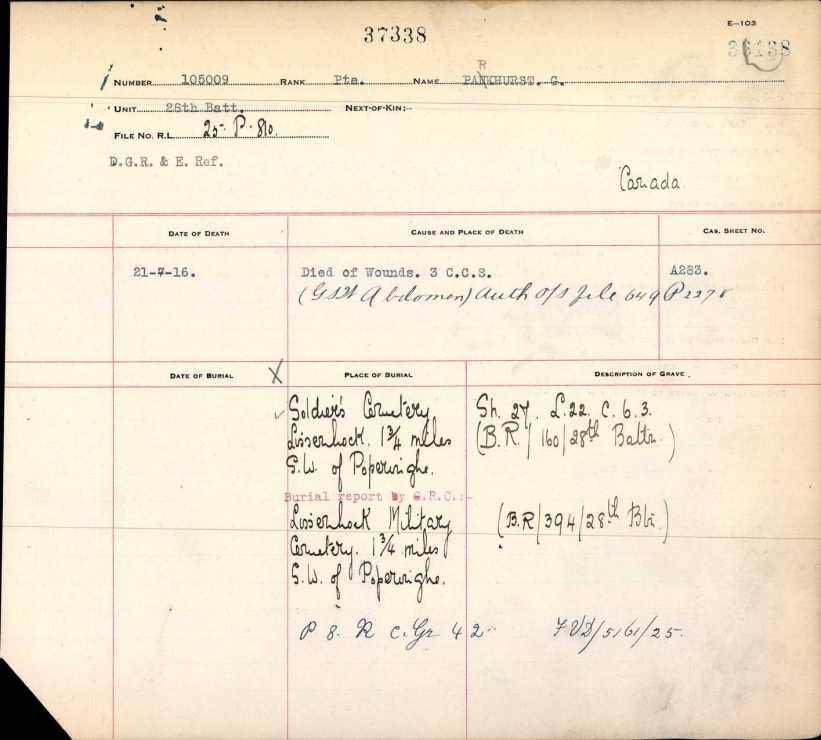 37338
E—103
NUMBER 105009 RANK Pte. NAME PARKHURST. G.
UNIT 28th Batt. NEXT-OF-KIN:-
FILE NO. R.L. 25-P-810.
D.G.R. & E. Ref.
Canada.
DATE OF DEATH CAUSE AND PLACE OF DEATH CAS. SHEET NO.
21-7-16. Died of Wounds. 3 C.C.S. A283.
(GSW Abdomen) Auth O/S file 649 P2278
DATE OF BURIAL X PLACE OF BURIAL DESCRIPTION OF GRAVE.
Soldier's Cemetery Sh. 27. L.22. c. 6.3.
Lissenhock. 1¾ miles (B.R./160/28th Baltn.)
S.W. of Poperinghe.
Burial report by G.R.C.:-
Lissenhock Military (B.R/394/28th Btn.)
Cemetery. 1¾ miles
S.W. of Poperinghe.
P 8. R c. Gr 42- /5161/25.